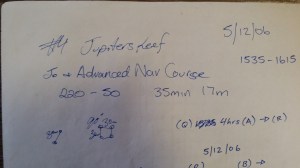 #4 Jupiters Leaf
5/12/06
1535-1615
Jo → Advanced Nav Course
220 - 50 35min 17m
(Q) 4hrs (A) → D (B)
5/12/06
(B) → D